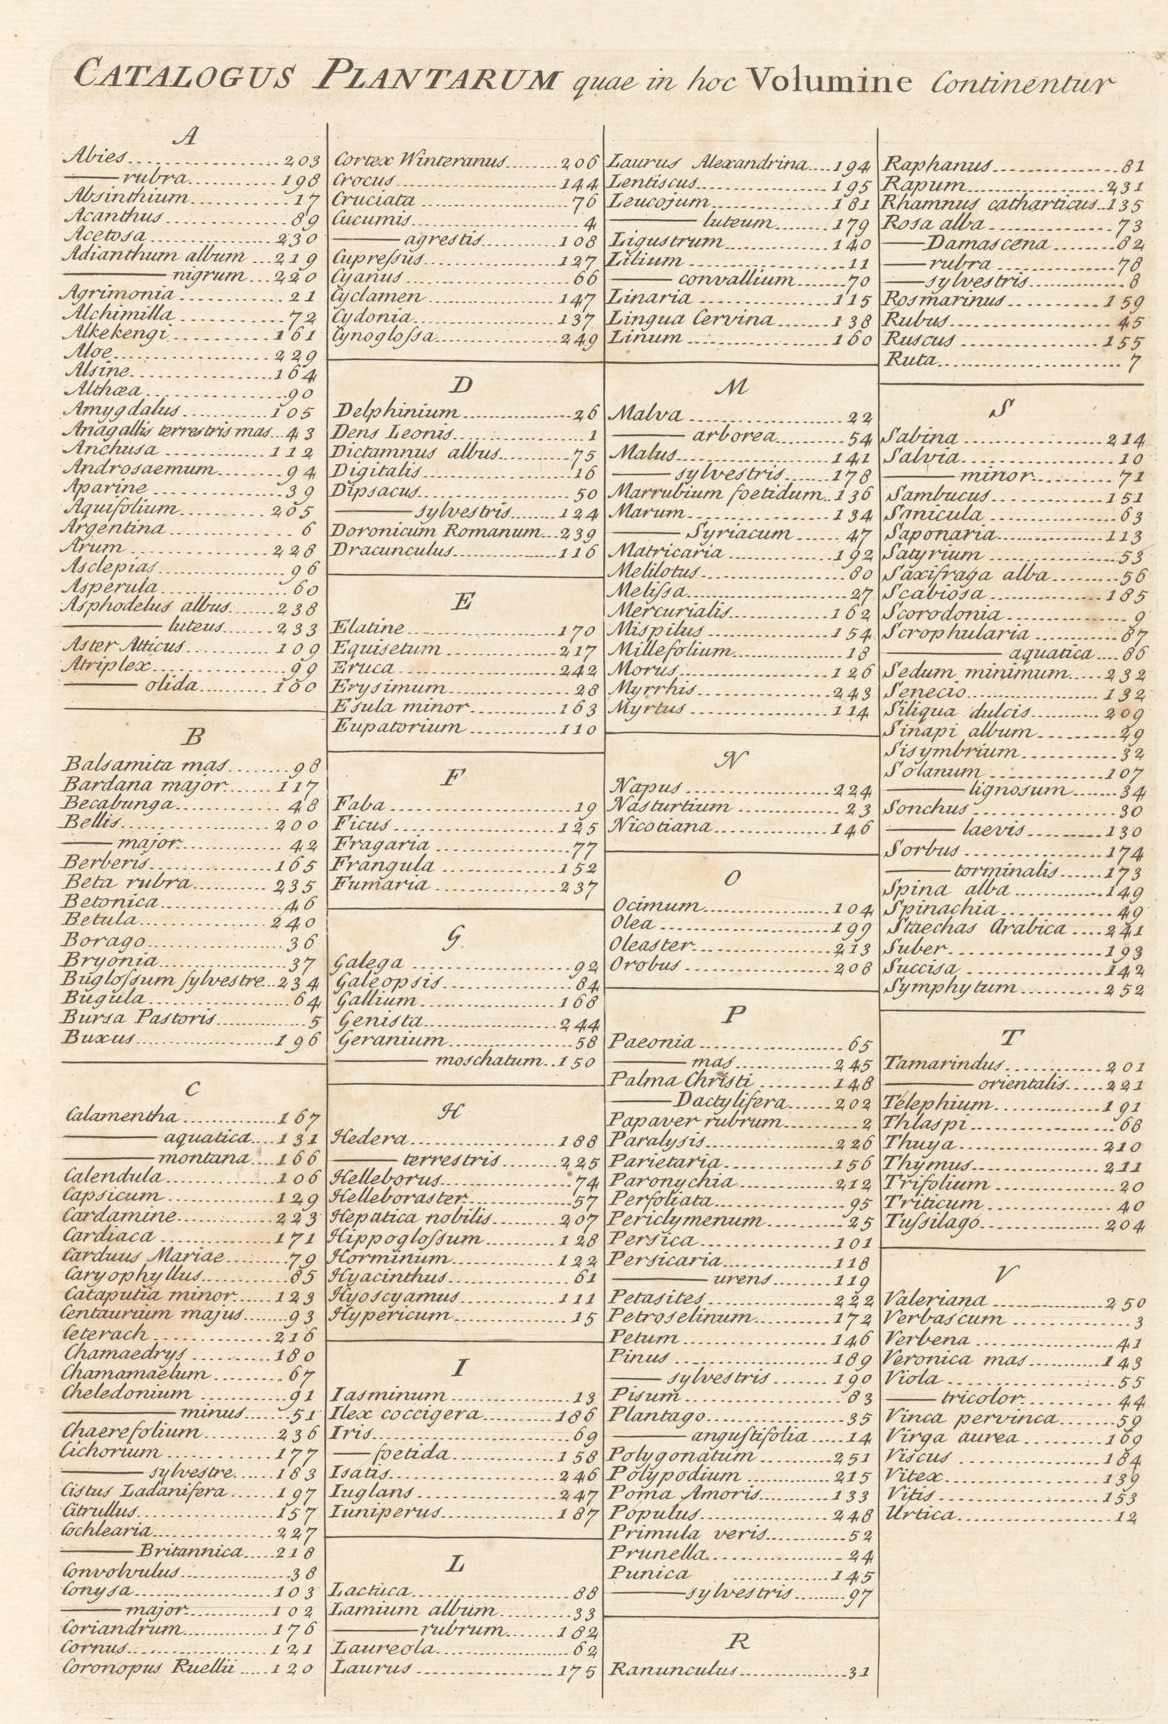 CATALOGUS PLANTARUM quae in hoc Volumine Continentur
A
Abies 203
——— rubra 198
Absinthium 17
Acanthus 89
Acetosa 230
Adianthum album 219
——— nigrum 220
Agrimonia 21
Alchimilla 72
Alkekengi 161
Aloe 229
Alsine 164
Althæa 90
Amygdalus 105
Anagallis terrestris mas 43
Anchusa 112
Androsaemum 94
Aparine 39
Aquifolium 205
Argentina 6
Arum 228
Asclepias 96
Asperula 60
Asphodelus albus 238
——— luteus 233
Aster Atticus 109
Atriplex 99
——— olida 100
B
Balsamita mas 98
Bardana major 117
Becabunga 48
Bellis 200
——— major 42
Berberis 165
Beta rubra 235
Betonica 46
Betula 240
Borago 36
Bryonia 37
Bugloſsum ſylvestre 234
Bugula 64
Bursa Pastoris 5
Buxus 196
C
Calamentha 167
——— aquatica 131
——— montana 166
Calendula 106
Capsicum 129
Cardamine 223
Cardiaca 171
Carduus Mariae 79
Caryophyllus 85
Cataputia minor 123
Centaurium majus 93
Ceterach 216
Chamaedrys 180
Chamamaelum 67
Cheledonium 91
——— minus 51
Chaerefolium 236
Cichorium 177
——— sylvestre 183
Cistus Ladanifera 197
Citrullus 157
Cochlearia 227
——— Britannica 218
Convolvulus 38
Conysa 103
——— major 102
Coriandrum 176
Cornus 121
Coronopus Ruellii 120
Cortex Winteranus 206
Crocus 144
Cruciata 76
Cucumis 4
——— agrestis 108
Cupreſsus 127
Cyanus 66
Cyclamen 147
Cydonia 137
Cynogloſsa 249
D
Delphinium 26
Dens Leonis 1
Dictamnus albus 75
Digitalis 16
Dipsacus 50
——— sylvestris 124
Doronicum Romanum 239
Dracunculus 116
E
Elatine 170
Equisetum 217
Eruca 242
Erysimum 28
Esula minor 163
Eupatorium 110
F
Faba 19
Ficus 125
Fragaria 77
Frangula 152
Fumaria 237
G
Galega 92
Galeopsis 84
Gallium 168
Genista 244
Geranium 58
——— moschatum 150
H
Hedera 188
——— terrestris 225
Helleborus 74
Helleboraster 57
Hepatica nobilis 207
Hippogloſsum 128
Horminum 122
Hyacinthus 61
Hyoscyamus 111
Hypericum 15
I
Iasminum 13
Ilex coccigera 186
Iris 69
——— foetida 158
Isatis 246
Iuglans 247
Iuniperus 187
L
Lactuca 88
Lamium album 33
——— rubrum 182
Laureola 62
Laurus 175
Laurus Alexandrina 194
Lentiscus 195
Leucojum 181
——— luteum 179
Ligustrum 140
Lilium 11
——— convallium 70
Linaria 115
Lingua Cervina 138
Linum 160
M
Malva 22
——— arborea 54
Malus 141
——— sylvestris 178
Marrubium foetidum 136
Marum 134
——— Syriacum 47
Matricaria 192
Melilotus 80
Meliſsa 27
Mercurialis 162
Mispilus 154
Millefolium 18
Morus 126
Myrrhis 243
Myrtus 114
N
Napus 224
Nasturtium 23
Nicotiana 146
O
Ocimum 104
Olea 199
Oleaster 213
Orobus 208
P
Paeonia 65
——— mas 245
Palma Christi 148
——— Dactylifera 202
Papaver rubrum 2
Paralysis 226
Parietaria 156
Paronychia 212
Perfoliata 95
Periclymenum 25
Persica 101
Persicaria 118
——— urens 119
Petasites 222
Petroselinum 172
Petum 146
Pinus 189
——— sylvestris 190
Pisum 83
Plantago 35
——— anguſtifolia 14
Polygonatum 251
Polypodium 215
Poma Amoris 133
Populus 248
Primula veris 52
Prunella 24
Punica 145
——— sylvestris 97
R
Ranunculus 31
Raphanus 81
Rapum 231
Rhamnus catharticus 135
Rosa alba 73
——— Damascena 82
——— rubra 78
——— sylvestris 8
Rosmarinus 159
Rubus 45
Ruscus 155
Ruta 7
S
Sabina 214
Salvia 10
——— minor 71
Sambucus 151
Sanicula 63
Saponaria 113
Satyrium 53
Saxifraga alba 56
Scabiosa 185
Scorodonia 9
Scrophularia 87
——— aquatica 86
Sedum minimum 232
Senecio 132
Siliqua dulcis 209
Sinapi album 29
Sisymbrium 32
Solanum 107
——— lignosum 34
Sonchus 30
——— laevis 130
Sorbus 174
——— torminalis 173
Spina alba 149
Spinachia 49
Staechas Arabica 241
Suber 193
Succisa 142
Symphytum 252
T
Tamarindus 201
——— orientalis 221
Telephium 191
Thlaspi 68
Thuya 210
Thymus 211
Trifolium 20
Triticum 40
Tuſsilago 204
V
Valeriana 250
Verbascum 3
Verbena 41
Veronica mas 143
Viola 55
——— tricolor 44
Vinca pervinca 59
Virga aurea 169
Viscus 184
Vitex 139
Vitis 153
Urtica 12